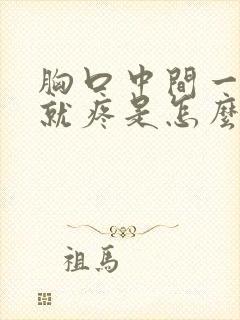 胸口中間一
就疼是怎麼
祖馬